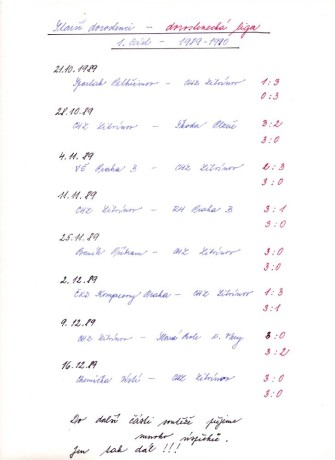 Starší dorostenci - dorostenecká liga
1. část - 1989-1990
21.10.1989
Spartak Pelhřimov - CHZ Litvínov 1:3
0:3
28.10.89
CHZ Litvínov - Škoda Plzeň 3:2
3:0
4.11.89
VŠ Praha B - CHZ Litvínov 2:3
3:0
11.11.89
CHZ Litvínov - RH Praha B 3:1
3:0
25.11.89
Baník Příbram - CHZ Litvínov 3:0
3:0
2.12.89
ČKD Kompresory Praha - CHZ Litvínov 1:3
3:1
9.12.89
CHZ Litvínov - Stará Role K. Vary 3:0
3:2
16.12.89
Chemička Ústí - CHZ Litvínov 3:0
3:0
Do další části soutěže přejeme
mnoho úspěchů.
Jen tak dál!!!